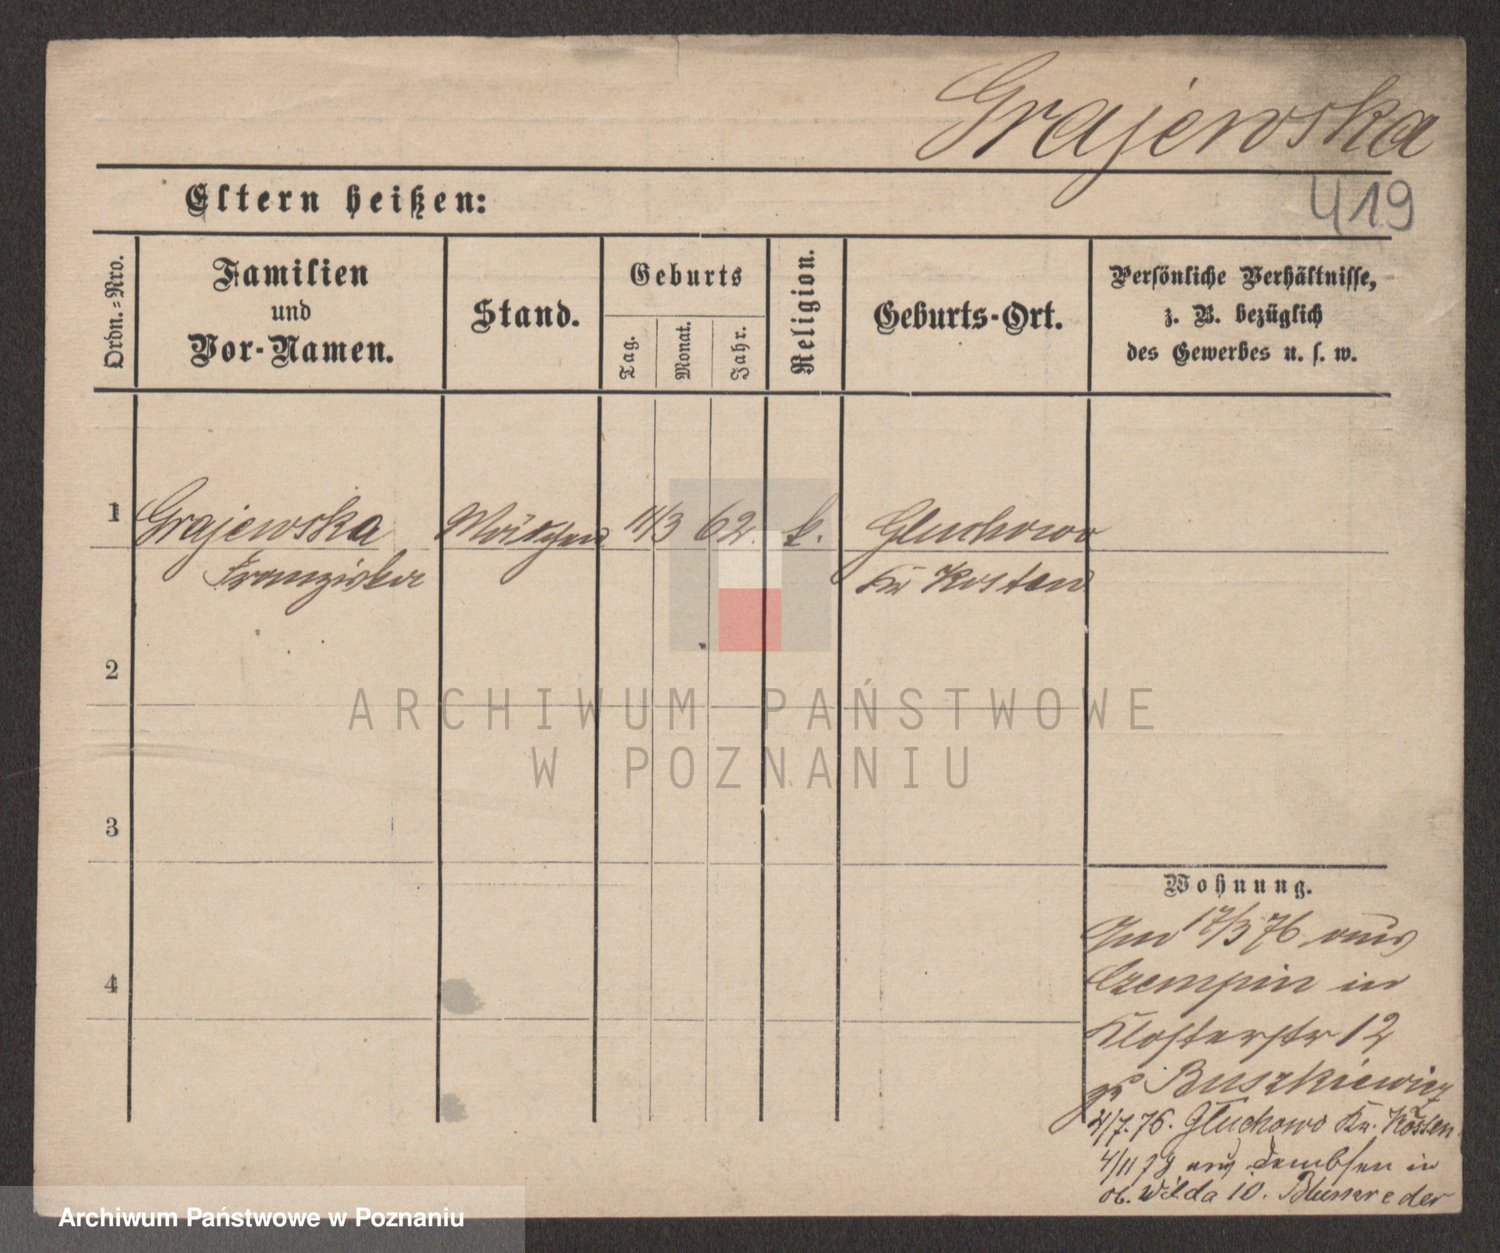 Grajewska
419
Eltern heißen:
Ordn.-Nro.
Familien
und
Vor-Namen.
Stand.
Geburts
Tag.
Monat.
Jahr.
Religion.
Geburts-Ort.
Persönliche Verhältnisse,
z. B. bezüglich
des Gewerbes u. s. w.
1
Grajewska
Franziska
Mädchen
11/3 62. k.
Gluchowo
Kr Kosten
2
3
4
Wohnung.
17/3 76 aus
Czempin in
Klosterstr 12
Buszkiewicz
4/7. 76. Głuchowo Kr. Kosten
4/11 78 aus Dembsen in
ob. Wilda 10.
ARCHIWUM PAŃSTWOWE
W POZNANIU
Archiwum Państwowe w Poznaniu